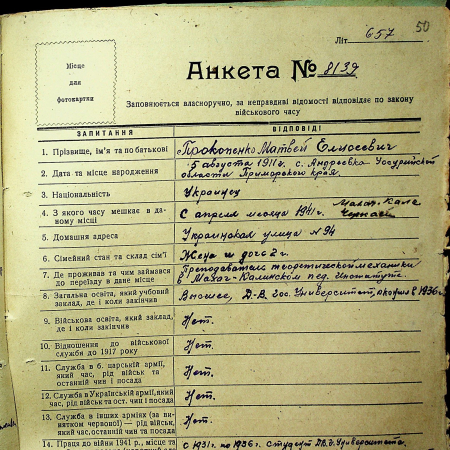 50
Літ. 657
Місце
для
фотокартки
Анкета № 8139
Заповнюється власноручно, за неправдиві відомості відповідає по закону
військового часу
ЗАПИТАННЯ
ВІДПОВІДІ
1. Прізвище, ім'я та по батькові
Прокопенко Матвей Елисеевич
2. Дата та місце народження
5 августа 1911 г. с. Андреевка Уссурийской
области Приморского края.
3. Національність
Украинец
4. З якого часу мешкає в да-
ному місці
С апреля месяца 1941 г.
5. Домашня адреса
Украинская улица № 94
6. Сімейний стан та склад сім'ї
Жена и
7. Де проживав та чим займався
до переїзду в дане місце
Преподаватель теоретической механики
в Махач-Калинском пед. Институте.
8. Загальна освіта, який учбовий
заклад, де і коли закінчив
Высшее, Д-В. Гос. Университет, окончил в 1936 г.
9. Військова освіта, який заклад,
де і коли закінчив
Нет.
10. Відношення до військової
служби до 1917 року
Нет.
11. Служба в б. царській армії,
який час, рід військ та
останній чин і посада
Нет.
12. Служба в Українській армії, який
час, рід військ та ост. чин і посада
Нет.
13. Служба в інших арміях (за ви-
нятком червоної) — рід військ,
який час, останній чин та посада
Нет.
14. Праця до війни 1941 р., місце та
С 1931 г. по 1936 г. Студент Д.В. Университета.